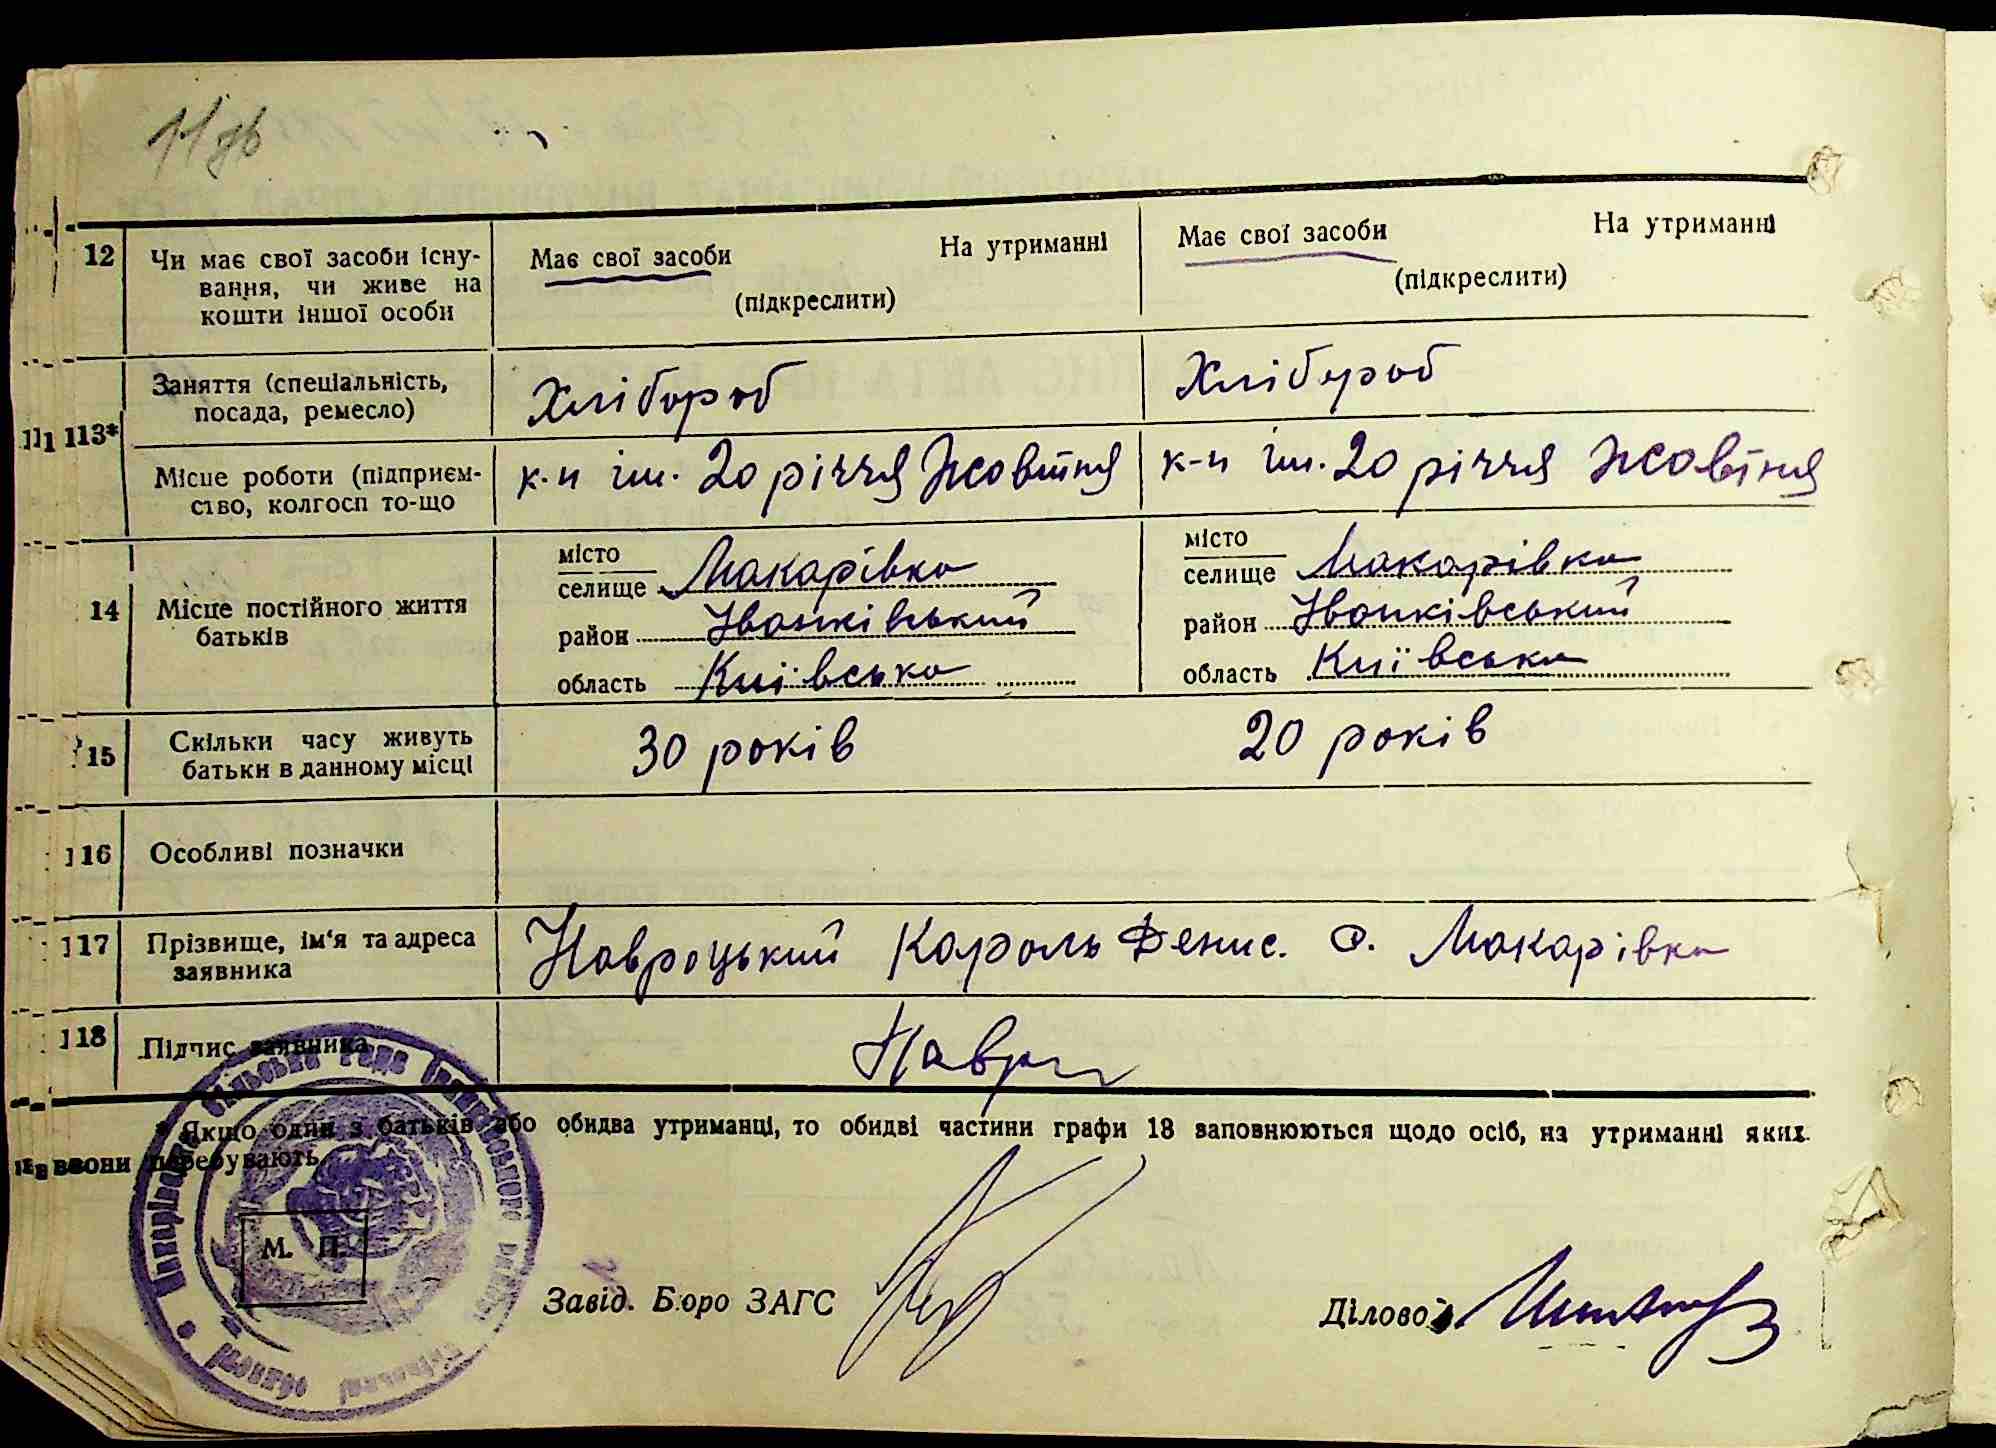 11 зв
12 Чи має свої засоби існу-
вання, чи живе на
кошти іншої особи
Має свої засоби На утриманні
(підкреслити)
Має свої засоби На утриманні
(підкреслити)
113*
Заняття (спеціальність,
посада, ремесло)
Хлібороб
Хлібороб
Місце роботи (підприєм-
ство, колгосп то-що
к-п ім. 20 річчя Жовтня
к-п ім. 20 річчя Жовтня
14 Місце постійного життя
батьків
місто
селище Макарівка
район Іванківський
область Київська
місто
селище Макарівка
район Іванківський
область Київська
15 Скільки часу живуть
батьки в данному місці
30 років
20 років
116 Особливі позначки
117 Прізвище, ім'я та адреса
заявника
Навроцький Король Денис. с. Макарівка
118 Підпис заявника
Навро
* Якщо один з батьків або обидва утриманці, то обидві частини графи 18 заповнюються щодо осіб, на утриманні яких
вони перебувають.
Макарівська сільська рада Іванківського району Київської області
М. П.
Завід. Бюро ЗАГС
Діловод